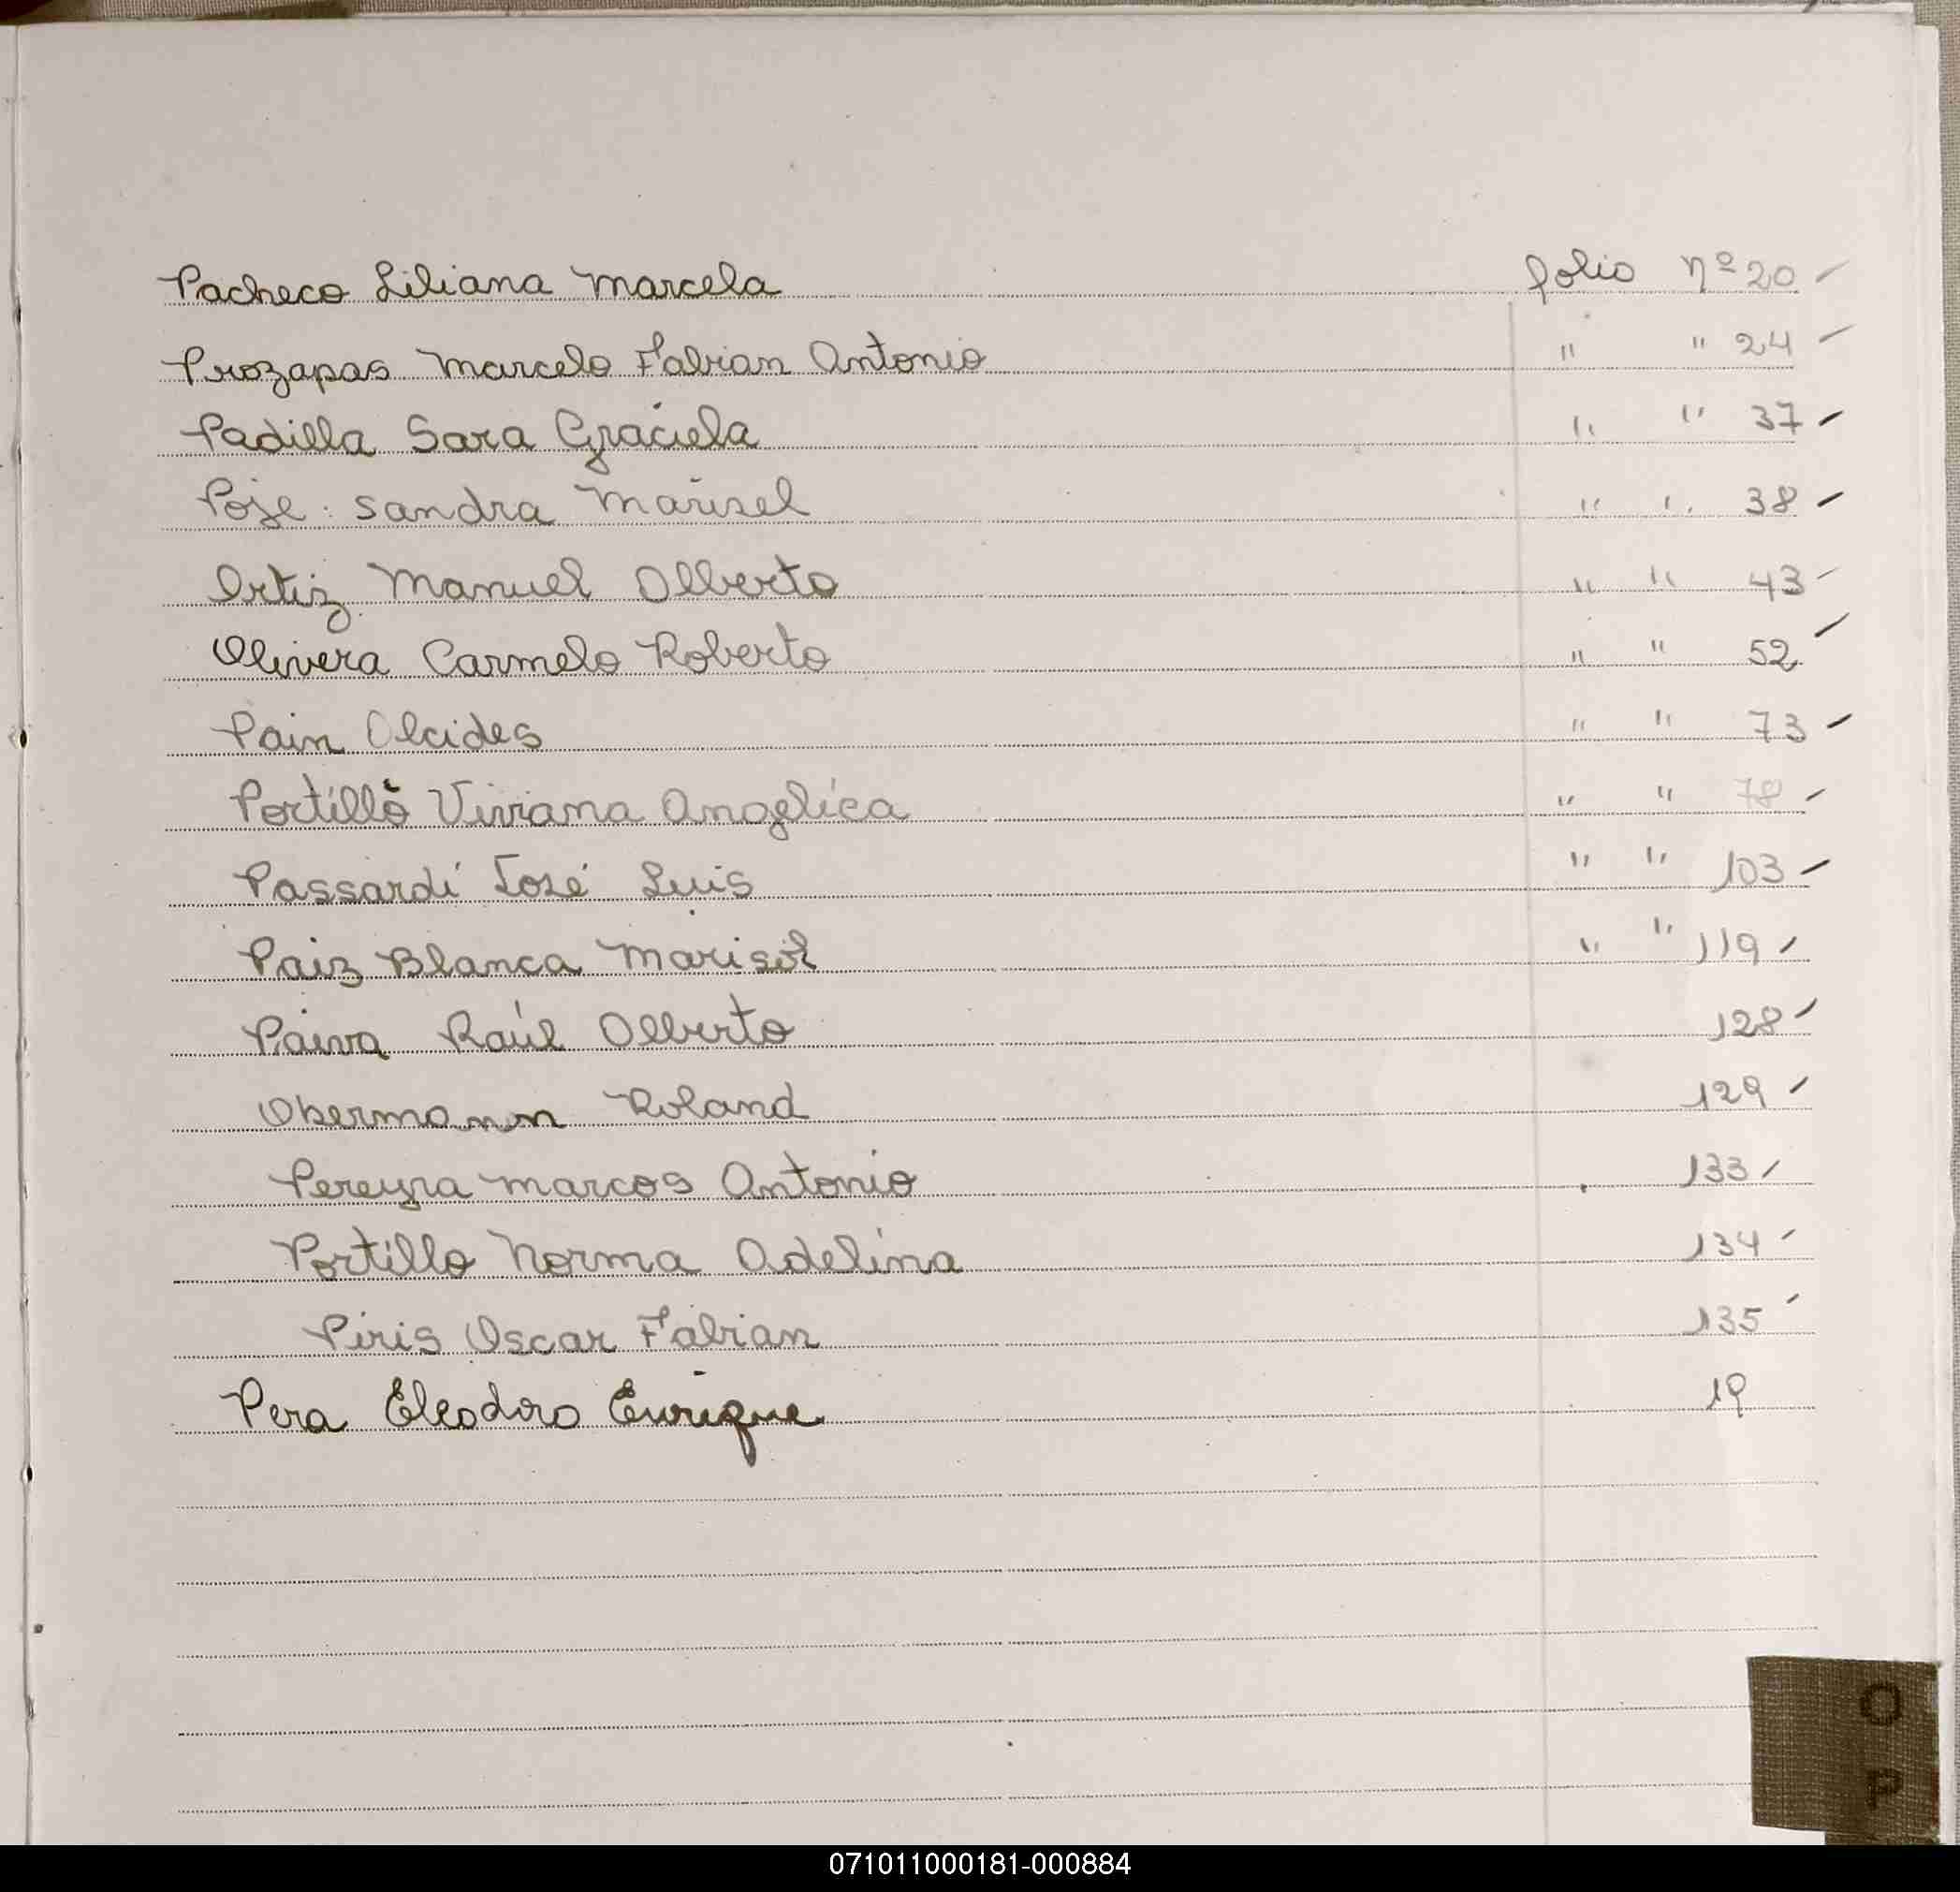 Pacheco Liliana Marcela folio nº 20 /
Prozapas Marcelo Fabian Antonio " " 24 /
Padilla Sara Graciela " " 37 /
Poje Sandra Marisel " " 38 /
Ortiz Manuel Alberto " " 43 /
Olivera Carmelo Roberto " " 52 /
Pain Alcides " " 73 /
Portillo Viviana Angelica " " 78 /
Passardi José Luis " " 103 /
Paiz Blanca Marisol " " 119 /
Paiva Raúl Alberto 128 /
Obermann Roland 129 /
Pereyra Marcos Antonio 133 /
Portillo Norma Adelina 134 /
Piris Oscar Fabian 135 /
Pera Eleodoro Enrique 19
O
P
071011000181-000884